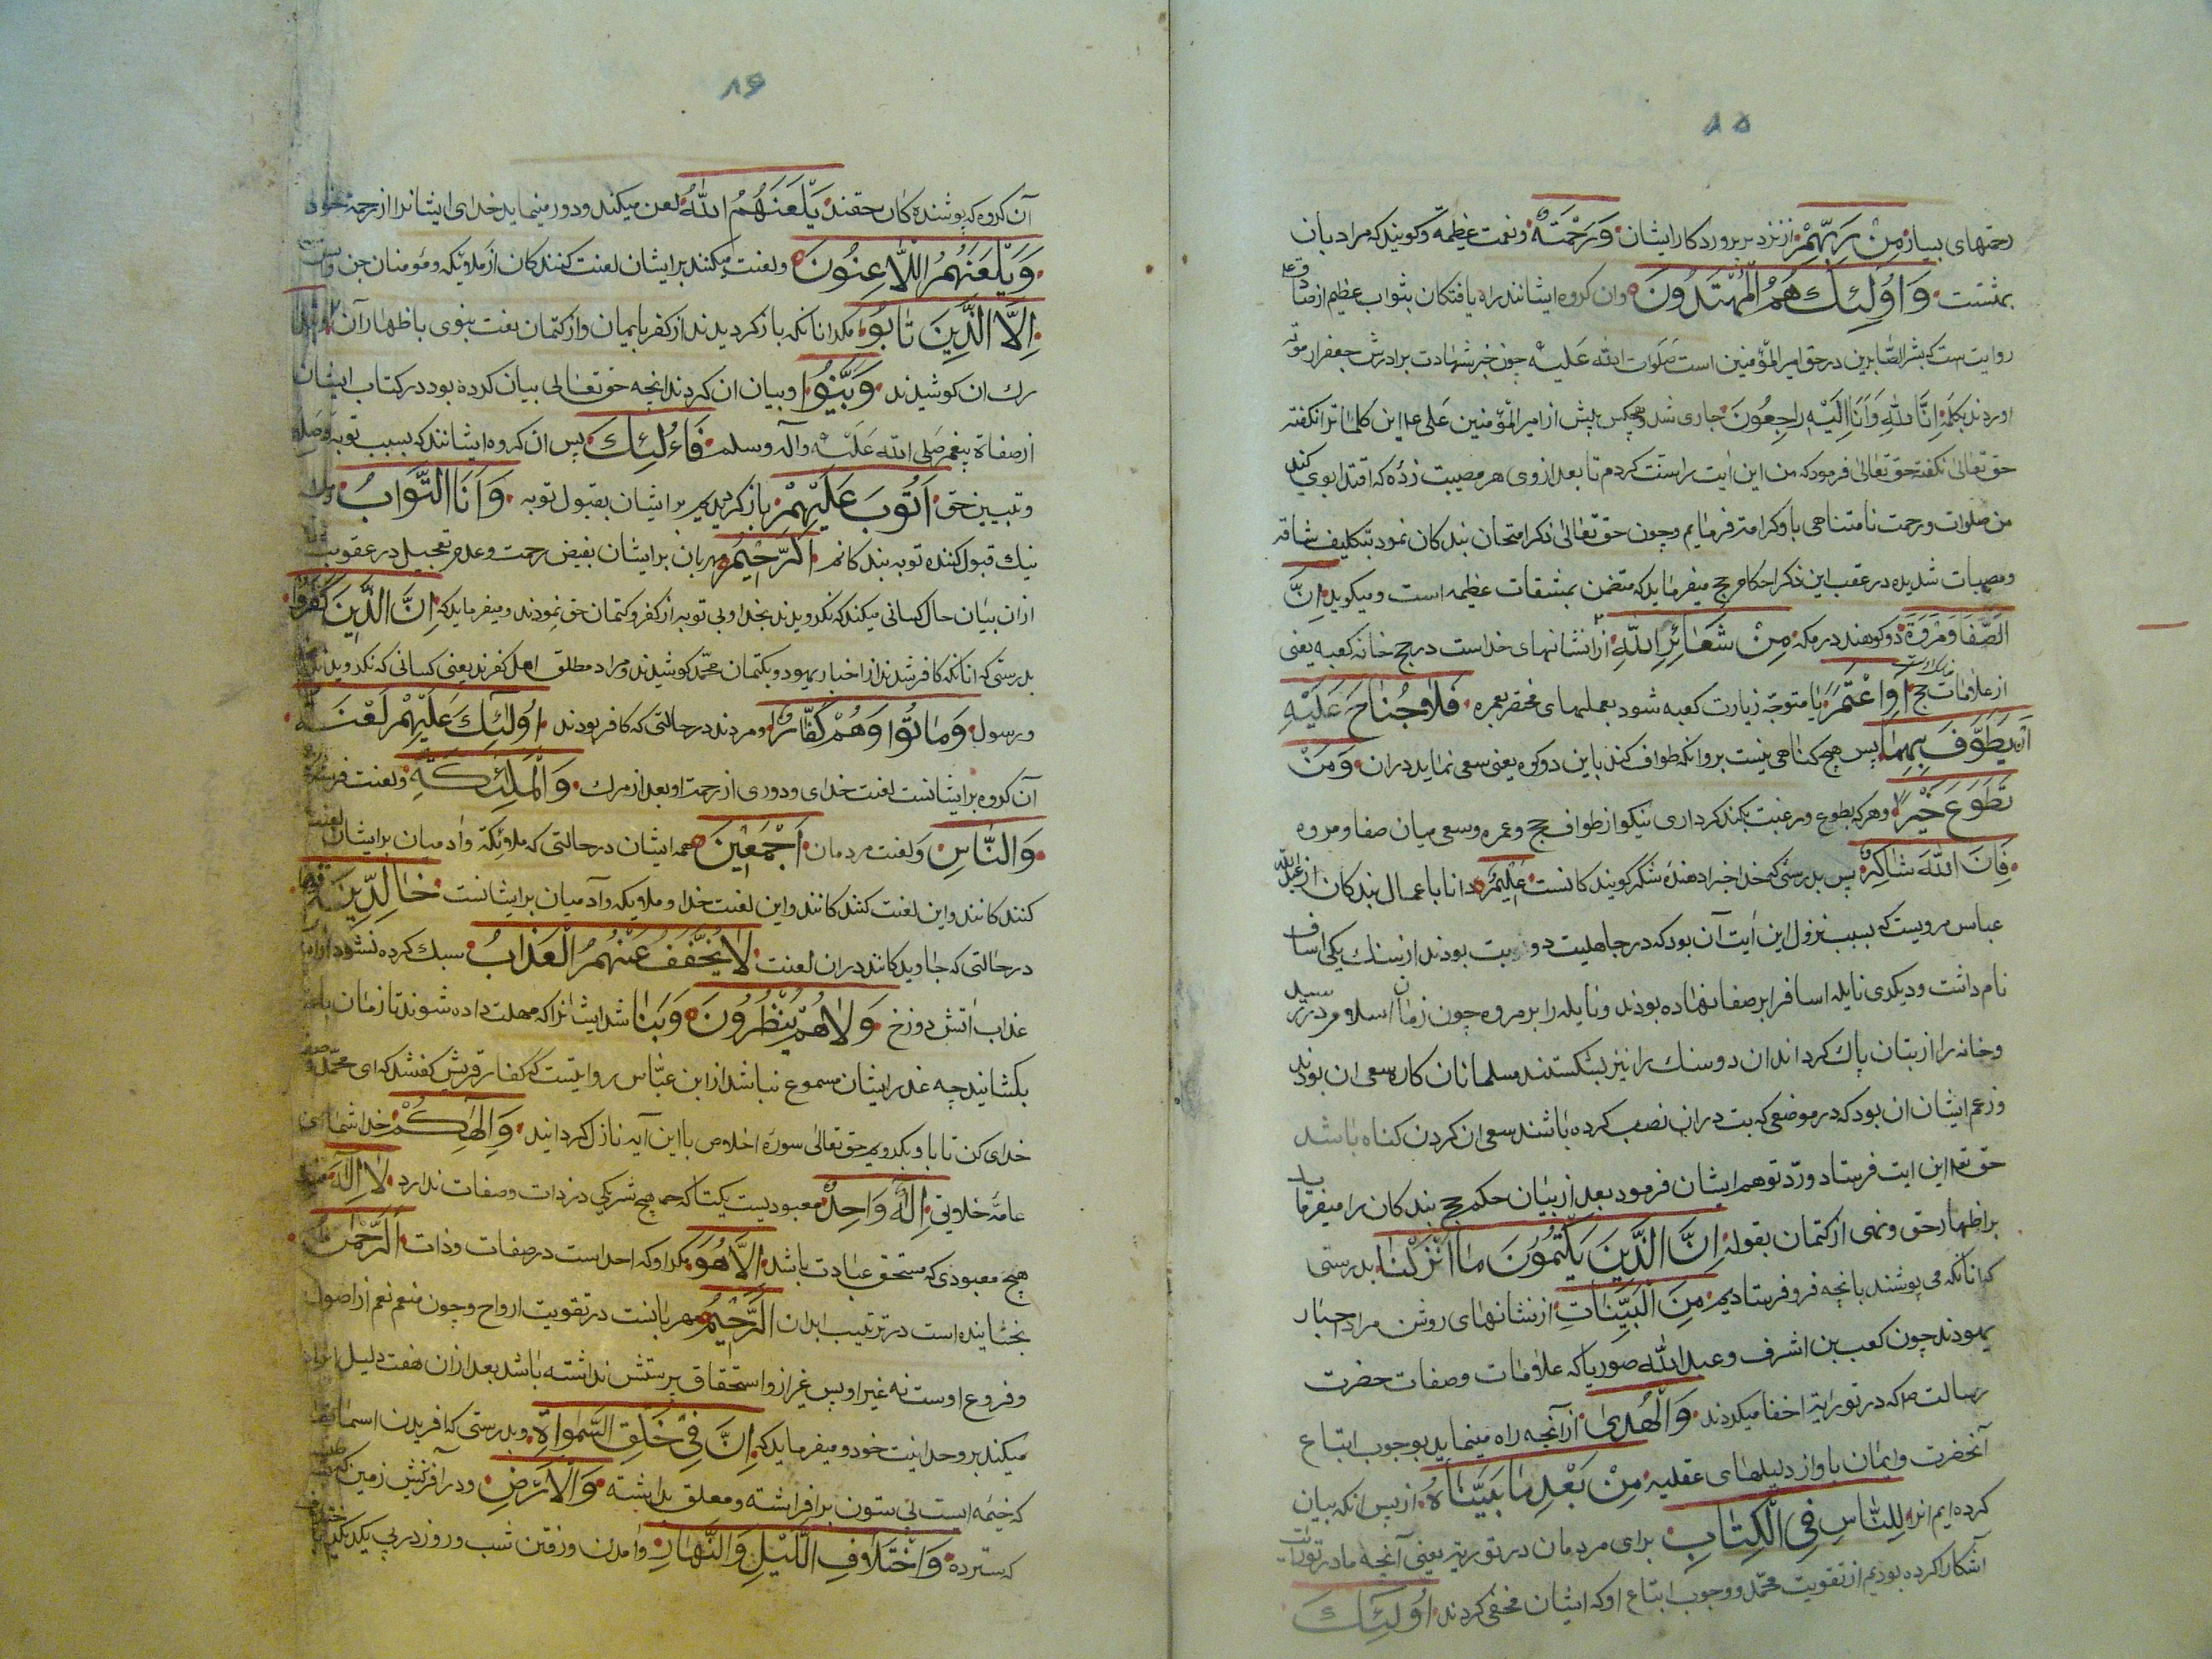 ۸۵
رحمتهای بسیار مِنْ رَبِّهِمْ از نزد پروردکار ایشان وَرَحْمَةٌ ونعمت عظیمه وکویند که مراد بان
بهشتست وَاُولٰئِكَ هُمُ الْمُهْتَدُونَ وان کروه ایشانند راه یافتکان بثواب عظیم از صادق ع
روایت است که بشر الصّابرین در حق امیر المؤمنین است صلوات الله علیه چون خبر شهادت برادرش جعفر از موته
اوردند بکلمهٔ اِنَّا لِلّٰهِ وَاِنَّا اِلَیْهِ رَاجِعُونَ جاری شد وهیچکس پیش از امیر المؤمنین علی ع این کلماترا نکفته
حق تعالی نکفته حق تعالی فرمود که من این ایت را سنّت کردم تا بعد از وی هر مصیبت زدهٔ که اقتدا بوی کند
من صلوات ورحمت نامتناهی باو کرامت فرمایم وچون حق تعالی ذکر امتحان بندکان نمود بتکلیف شاقه
ومصیبات شدیده در عقب این ذکر احکام حج میفرماید که متضمن بمشقات عظیمه است ومیکوید اِنَّ
الصَّفَا وَمَرْوَةَ دو کوهند در مکه مِنْ شَعَائِرِ اللّٰهِ از نشانهای خداست در حج خانه کعبه یعنی
از علامات حج اَوِاعْتَمَرَ یا متوجّه زیارت کعبه شود بعملهای مختصر بعمره فَلَا جُنَاحَ عَلَیْهِ
اَنْ یَطَّوَّفَ بِهِمَا پس هیچ کناهی نیست بر وانکه طواف کند باین دو کوه یعنی سعی نماید دران وَمَنْ
تَطَوَّعَ خَیْرًا وهر که بطوع ورغبت بکند کرداری نیکو از طواف حج وعمره وسعی میان صفا ومروه
فَاِنَّ اللّٰهَ شَاکِرٌ پس بدرستی که خدا جزا دهندهٔ شکر کویندکانست عَلِیمٌ دانا باعمال بندکان از عبد الله
عباس مرویست که بسبب نزول این ایت آن بود که در جاهلیت دو بت بودند از سنك یکی اساف
نام داشت ودیکری نایله اساف را بر صفا نهاده بودند ونایله را بر مروه چون زمان اسلام در رسید
وخانه را از بتان پاك کرداند ان دو سنك را نیز بشکستند مسلمانان کاره سعی ان بودند
وزعم ایشان ان بود که در موضعی که بت دران نصب کرده باشند سعی ان کردن کناه باشد
حق تعالی این ایت فرستاد وردّ توهم ایشان فرمود بعد از بیان حکم حج بندکان را میفرماید
بر اظهار حق ونهی از کتمان بقوله اِنَّ الَّذِینَ یَکْتُمُونَ مَا اَنْزَلْنَا بدرستی
که انانکه می پوشند بانچه فرو فرستادیم مِنَ الْبَیِّنَاتِ از نشانهای روشن مراد احبار
یهودند چون کعب بن اشرف وعبد الله صوریا که علامات وصفات حضرت
رسالت ص که در توریة اخفا میکردند وَالْهُدٰی از آنچه راه مینماید بوجوب اتباع
آنحضرت وایمان باو از دلیلهای عقلیه مِنْ بَعْدِ مَا بَیَّنَّاهُ از پس انکه بیان
کرده ایم انرا لِلنَّاسِ فِی الْکِتَابِ برای مردمان در توریة یعنی آنچه ما در تورات
آشکارا کرده بودیم از تقویت محمّد ووجوب اتباع او که ایشان مخفی کردند اُولٰئِكَ
۸۶
آن کروه که پوشنده کان حقند یَلْعَنُهُمُ اللّٰهُ لعن میکند ودور مینماید خدای ایشانرا از رحمة خود
وَیَلْعَنُهُمُ اللَّاعِنُونَ ولعنت میکنند بر ایشان لعنت کنندکان از ملائکه ومؤمنان جن وانس
اِلَّا الَّذِینَ تَابُوا مکر انانکه باز کردیدند از کفر بایمان واز کتمان نعت نبوی باظهار آن
رك ان کوشیدند وَبَیَّنُوا وبیان ان کردند انچه حق تعالی بیان کرده بود در کتاب ایشان
از صفاة پیغمبر صلی الله علیه وآله وسلم فَاُولٰئِكَ پس ان کروه ایشانند که بسبب توبه
وتبیین حق اَتُوبَ عَلَیْهِمْ باز کردیم بر ایشان بقبول توبه وَاَنَا التَّوَّابُ
نیك قبول کننده توبه بندکانم الرَّحِیمُ مهربان بر ایشان بفیض رحمت وعدم تعجیل در عقوبت
ازان بیان حال کسانی میکند که نکرویدند بخدا وبی توبه از کفر وکتمان حق نمودند ومیفرماید که اِنَّ الَّذِینَ کَفَرُوا
بدرستی که انانکه کافر شدند از احبار یهود وبکتمان محمّد کوشیدند ومراد مطلق اهل کفرند یعنی کسانی که نکرویدند
ورسول وَمَاتُوا وَهُمْ کُفَّارٌ ومردند در حالتی که کافر بودند اُولٰئِكَ عَلَیْهِمْ لَعْنَةُ
آن کروه بر ایشانست لعنت خدای ودوری از رحمت او بعد از مرك وَالْمَلٰئِکَةِ ولعنت فرشته
وَالنَّاسِ ولعنت مردمان اَجْمَعِینَ همه ایشان در حالتی که ملائکه وآدمیان بر ایشان لعنت
کنندکانند واین لعنت کنندکانند واین لعنت خدا وملائکه وآدمیان بر ایشانست خَالِدِینَ فِیهَا
در حالتی که جاویدکانند دران لعنت لَا یُخَفَّفُ عَنْهُمُ الْعَذَابُ سبك کرده نشود از ایشان
عذاب اتش دوزخ وَلَا هُمْ یُنْظَرُونَ ونباشد ایشانرا که مهلت داده شوند تا زمان
بکشایند چه عذر ایشان مسموع نباشد از ابن عبّاس روایتست که کفار قریش کفتند که ای محمّد
خدای کن تا باو بکرویم حق تعالی سورهٔ اخلاص با این آیه نازل کردانید وَاِلٰهُکُمْ خدا شما
عامّه خلایق اِلٰهٌ وَاحِدٌ معبودیست یکتا که هیچ شریکی در ذات وصفات ندارد لَا اِلٰهَ نیست
هیچ معبودی که مستحق عبادت باشد اِلَّا هُوَ مکر او که احد است در صفات وذات الرَّحْمٰنُ
بخشاینده است در تربیت ابدان الرَّحِیمُ مهربانست در تقویت ارواح وچون منعم نعم از اصول
وفروع اوست نه غیر او پس غیر ازو استحقاق پرستش نداشته باشد بعد ازان هفت دلیل ایراد
میکند بر وحدانیت خود ومیفرماید که اِنَّ فِی خَلْقِ السَّمٰوَاتِ وبدرستی که افریدن اسمانها
که خیمه است بی ستون بر افراشته ومعلق بداشته وَالْاَرْضِ ودر آفرینش زمین
کسترده وَاخْتِلَافِ اللَّیْلِ وَالنَّهَارِ وامدن ورفتن شب وروز در پی یکدیکر